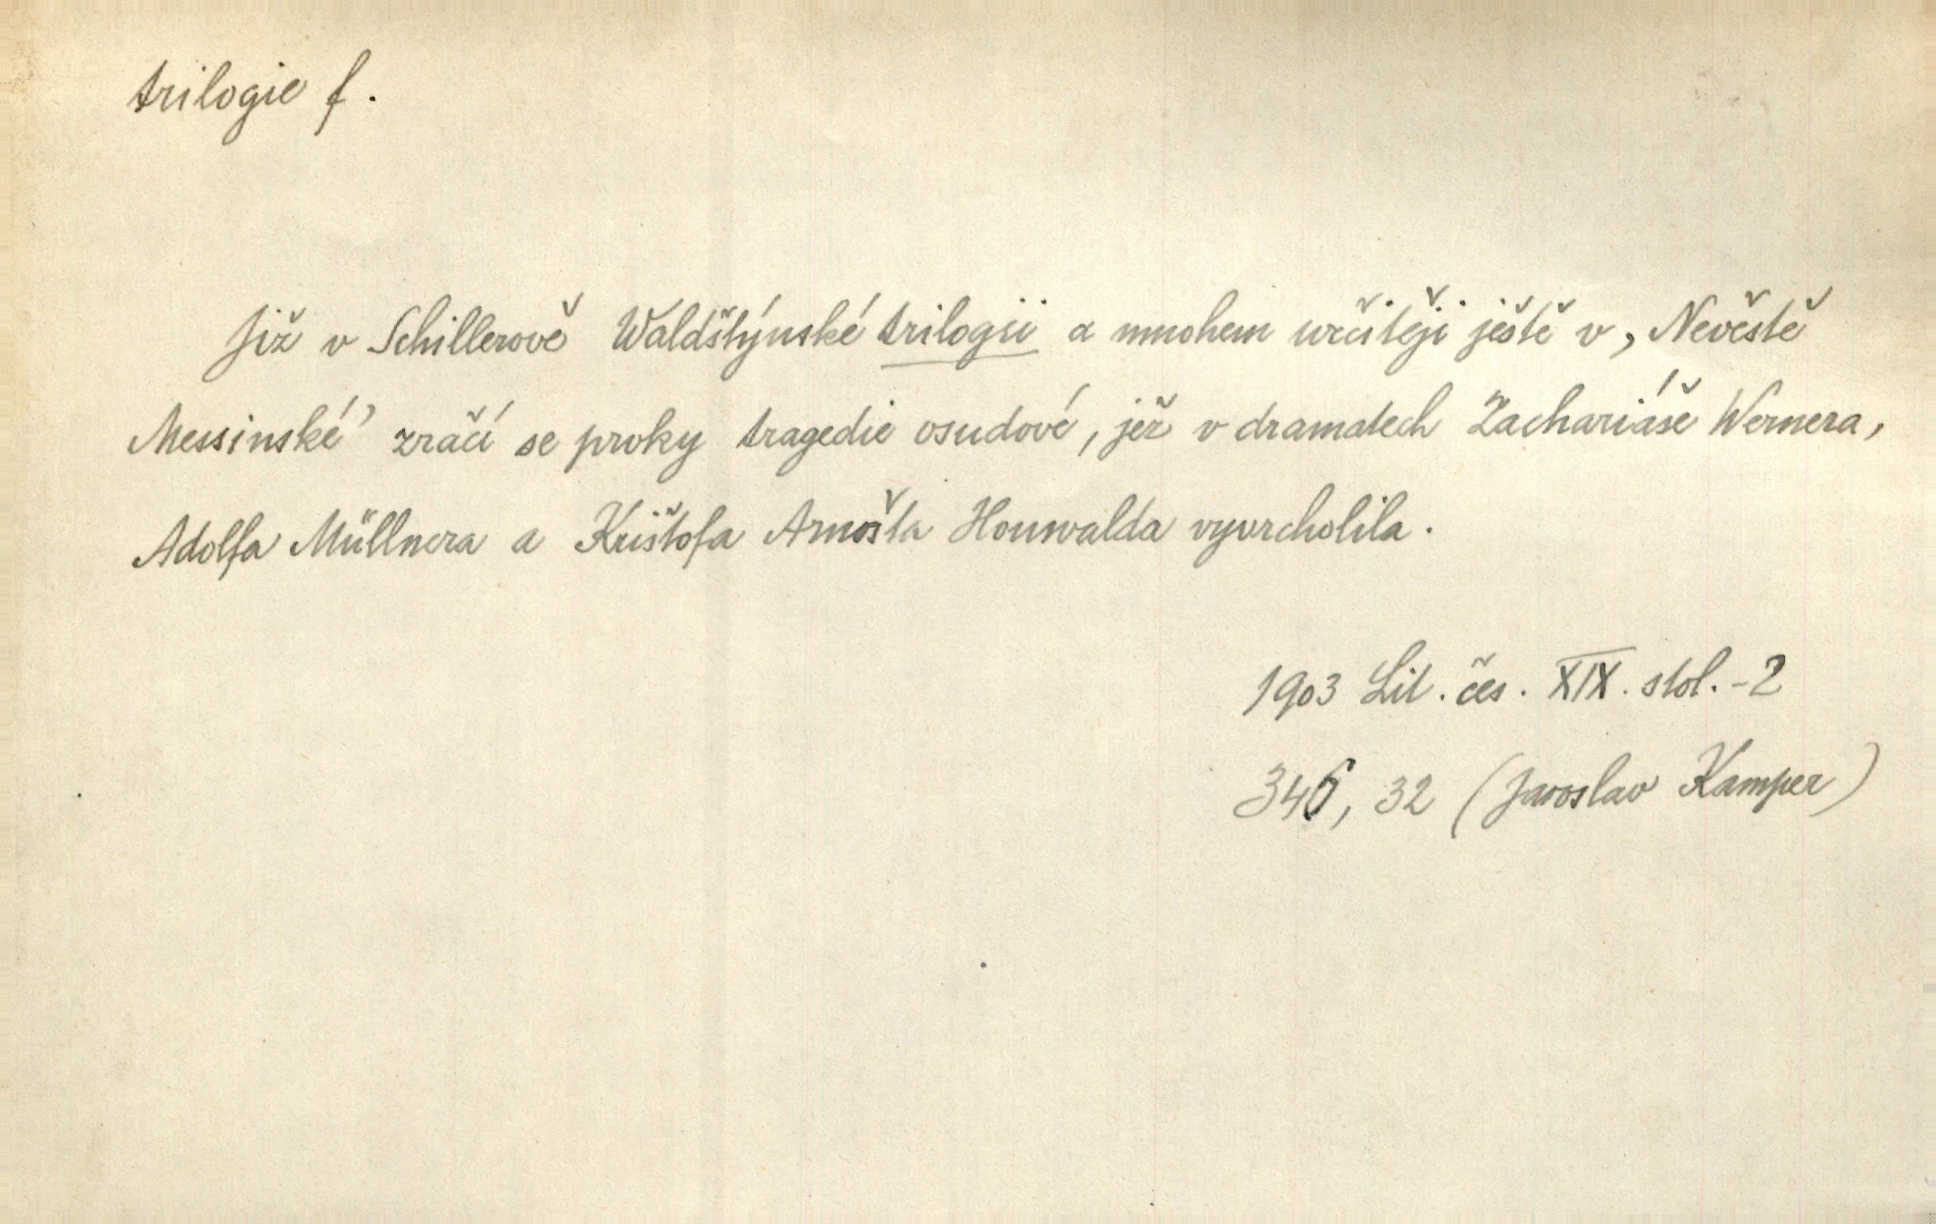 trilogie f.
Již v Schillerově Waldštýnské trilogii a mnohem určitěji ještě v ‚Nevěstě
Messinské’ zračí se prvky tragedie osudové, jež v dramatech Zachariáše Wernera,
Adolfa Müllnera a Krištofa Arnošta Houwalda vyvrcholila.
1903 Lit. čes. XIX. stol.-2
346, 32 (Jaroslav Kamper)